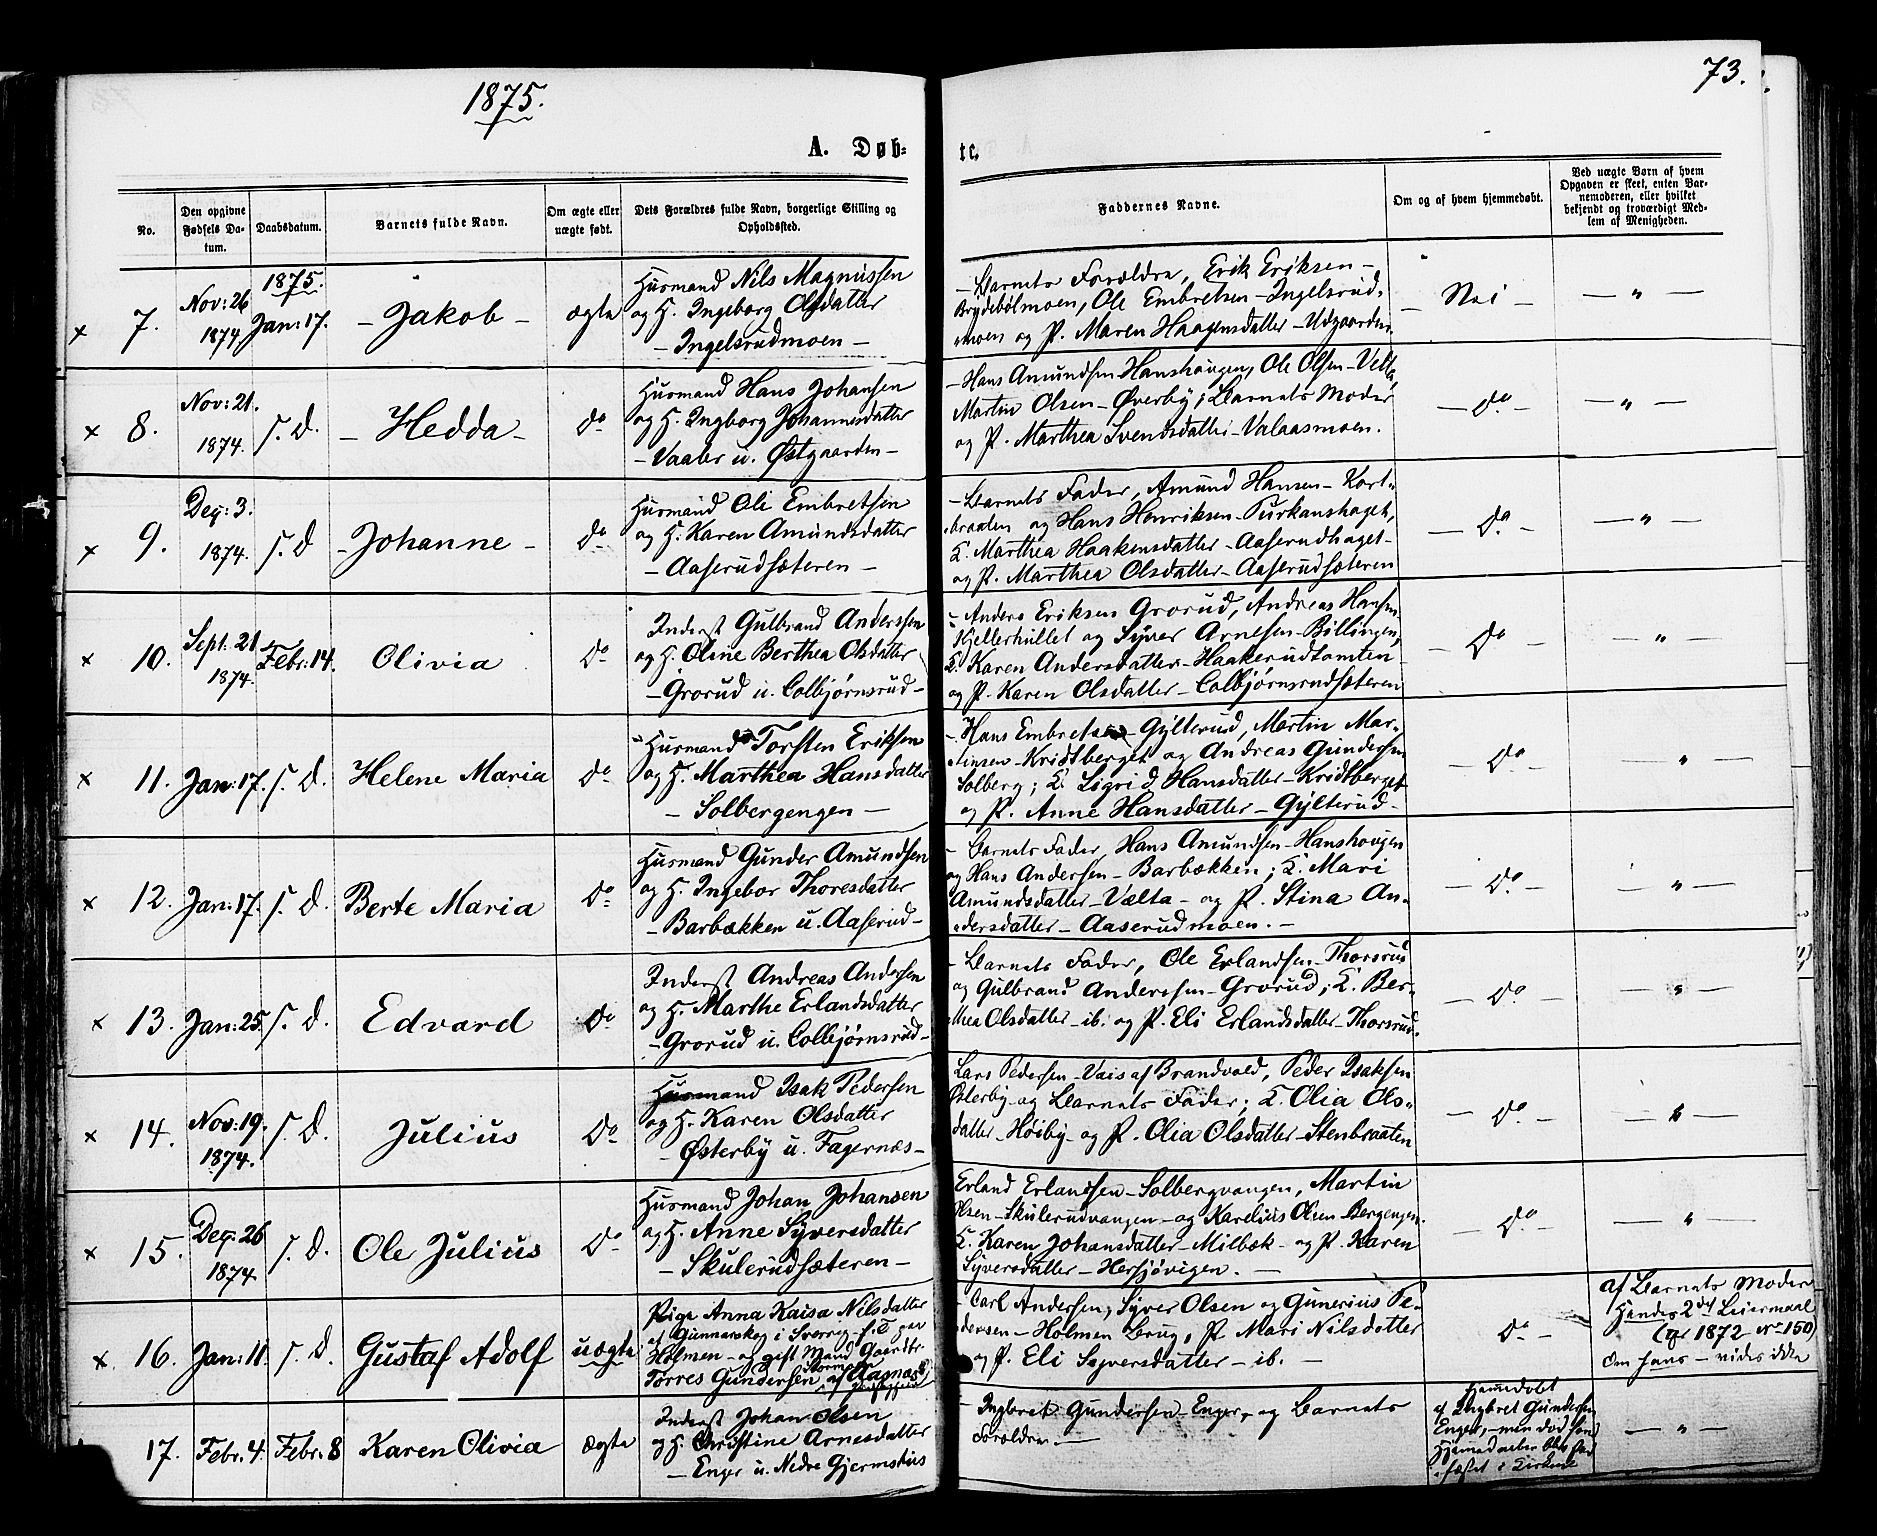 1875.
73.
A. Døb-
te.
No.
Den opgivne
Fødsels Da-
tum.
Daabsdatum.
Barnets fulde Navn.
Om ægte eller
uægte født.
Dets Forældres fulde Navn, borgerlige Stilling og
Opholdssted.
Faddernes Navne.
Om og af hvem hjemmedøbt.
Ved uægte Børn af hvem
Opgaven er skeet, enten Bar-
nemoderen, eller hvilket
bekjendt og troværdigt Med-
lem af Menigheden.
x 7.
Nov: 26
1874
1875.
Jan: 17.
- Jakob -
ægte
Husmand Nils Magnussen
og H. Ingeborg Olsdatter
- Ingelsrudmoen -
- Barnets Forældre, Erik Eriksen -
Brydebølmoen, Ole Embretsen - Ingelsrud-
moen og P. Maren Haagensdatter - Udgaarden
- Nei -
- " -
x 8.
Nov: 21.
1874.
s. D.
- Hedda -
do
Husmand Hans Johansen
og H. Ingborg Johannesdatter
- Vaaler u. Østgaarden -
- Hans Amundsen Hanshougen, Ole Olsen - Velta,
Martin Olsen - Øverby; Barnets Moder
og P. Marthea Svendsdatter - Valaasmoen.
- do -
- " -
x 9.
Dec: 3.
1874.
s. D
- Johanne -
do
Husmand Ole Embretsen
og H. Karen Amundsdatter
- Aaserudsæteren -
- Barnets Fader, Amund Hansen - Kort-
braaten og Hans Henriksen - Purkanshaget,
K. Marthea Haakensdatter - Aaserudhaget -
og P. Marthea Olsdatter - Aaserudsæteren
- do -
- " -
x 10.
Sept: 21
1874.
Febr: 14.
Olivia
do
Inderst Gulbrand Anderssen
og H. Oline Berthea Olsdatter
- Grorud u. Colbjørnsrud -
- Anders Eriksen Grorud, Andreas Hansen
Kjellerhullet og Syver Arnesen - Billingen,
K. Karen Andersdatter - Haakerudtomten
og P. Karen Olsdatter - Colbjørnsrudsæteren
- do -
- " -
x 11.
Jan: 17.
s. D.
Helene Maria
do
Husmand Torsten Eriksen
og H. Marthea Hansdatter
- Solbergengen -
- Hans Embretsen - Gylterud, Martin Mar-
tinsen - Kridtberget og Andreas Gundersen
Solberg; K. Sigrid Hansdatter - Kridtberget
og P. Anne Hansdatter - Gylterud -
- do -
- " -
x 12.
Jan: 17.
s. D.
Berte Maria
do
Husmand Gunder Amundsen
og H. Ingebor Thoresdatter
- Barbækken u. Aaserud -
- Barnets Fader, Hans Amundsen - Hanshougen
og Hans Andersen - Barbækken; K. Mari
Amundsdatter - Vælta - og P. Stina An-
dersdatter - Aaserudmoen. -
- do -
- " -
x 13.
Jan: 25.
s. D.
Edvard
do
Inderst Andreas Andersen
og H. Marthe Erlandsdatter
- Grorud u. Colbjørnsrud -
- Barnets Fader, Ole Erlandsen - Thorsrud
og Gulbrand Anderssen - Grorud; K. Ber-
thea Olsdatter - ib. og P. Eli Erlandsdatter - Thorsrud.
- do -
- " -
x 14.
Nov: 19.
1874.
s. D.
Julius
do
Husmand Isak Pedersen
og H. Karen Olsdatter
- Østerby u. Fagernæs -
Lars Pedersen - Vais af Brandvold, Peder Isaksen
Østerby - og Barnets Fader; K. Olia Ols-
datter - Høiby - og P. Olia Olsdatter - Stenbraaten
- do -
- " -
x 15.
Dec: 26
1874
s. D.
Ole Julius
do
Husmand Johan Johansen
og H. Anne Syversdatter
- Skulerudsæteren -
Erland Erlandsen - Solbergvangen, Martin
Olsen - Skulerudvangen - og Karelius Olsen - Bergengen.
K. Karen Johansdatter - Milbæk - og P. Karen
Syversdatter - Hersjøvigen. -
- do -
- " -
x 16.
Jan: 11.
s. D.
Gustaf Adolf
uægte
Pige Anna Kaisa Nilsdatter
af Gunnarskog i Sverrig - f. T. paa
Holmen - og gift Mand Gaardbr.
Torres Gundersen af Aagnæs
- Carl Andersen, Syver Olsen og Gunerius Pe-
dersen - Holmen Brug, P. Mari Nilsdatter
og P. Eli Syversdatter - ib. -
- do -
af Barnets Moder
Hendes 2det Leiermaal
(cfr 1872 No 150)
Om hans - vides ikke
17.
Febr: 4.
Febr: 8
Karen Olivia
ægte
Inderst Johan Olsen
og H. Christine Arnesdatter
- Enger u. Nedre Gjermshus
- Ingbret Gundersen - Enger, og Barnets
Forældre. -
Hjemmedøbt
af Ingbret Gundersen
Enger, - men død før
i Kirken
- " -